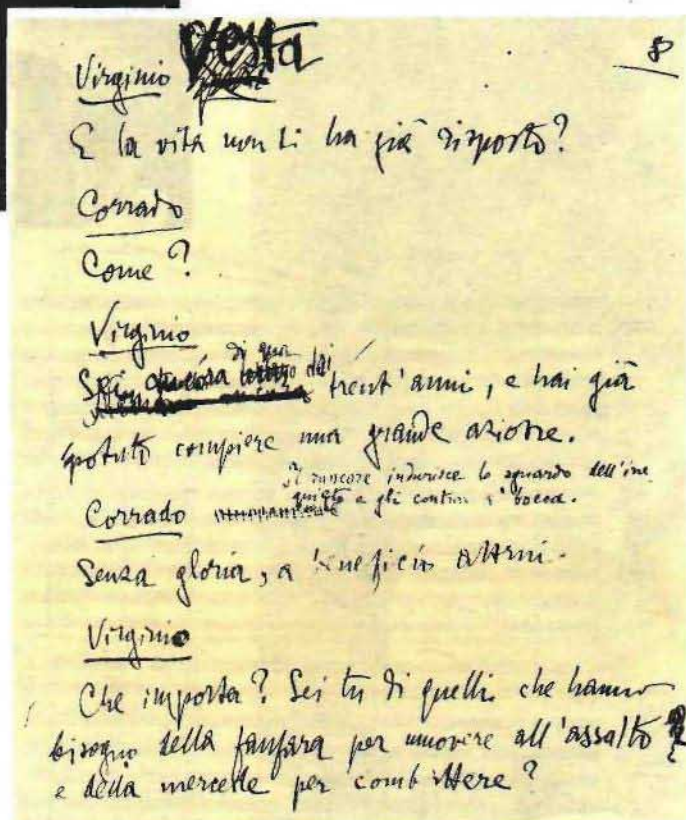 Virginio Vesta 8
E la vita non ti ha già risposto?
Corrado
Come?
Virginio
di qua
Sei ancora dai trent'anni, e hai già
potuto compiere una grande azione.
Il rancore indurisce lo sguardo dell'in
quieto e gli la bocca.
Corrado
Senza gloria, a beneficio altrui.
Virginio
Che importa? Sei tu di quelli che hanno
bisogno della fanfara per muovere all'assalto
e della mercede per combattere?